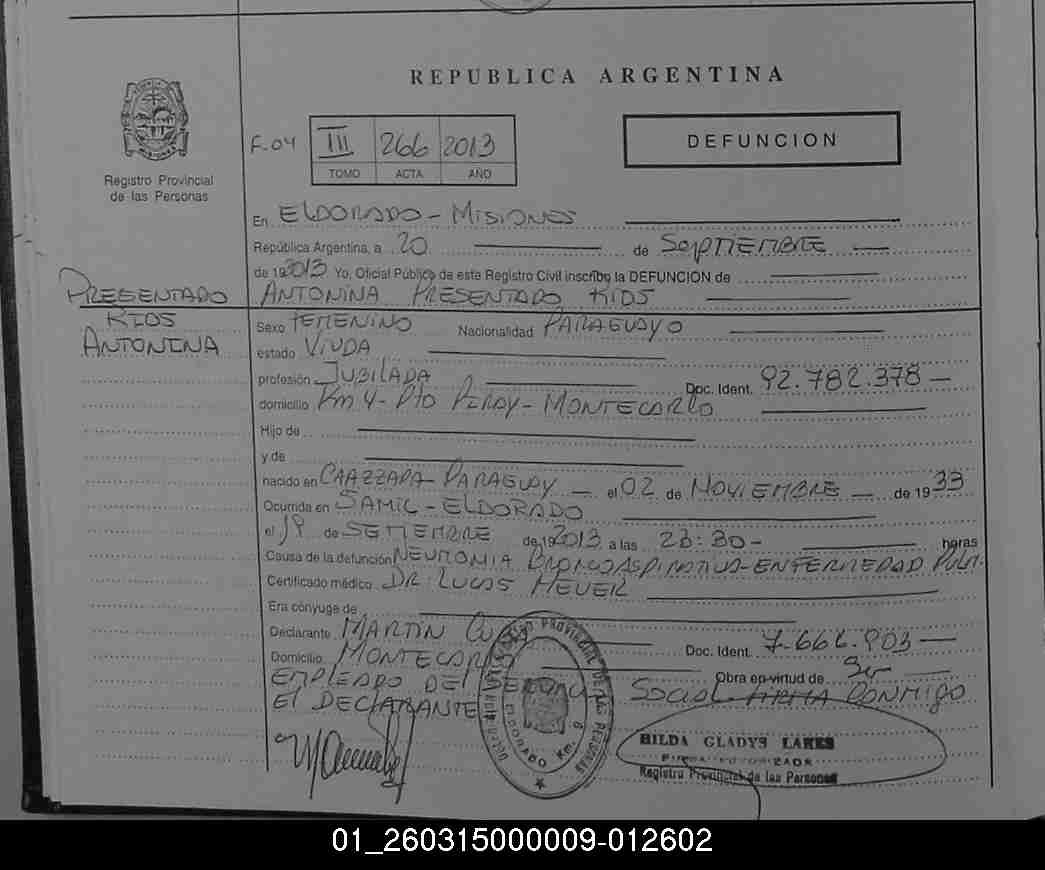 REPUBLICA ARGENTINA
Registro Provincial
de las Personas
DEFUNCION
F-04 III 266 2013
TOMO ACTA AÑO
En ELDORADO - MISIONES
República Argentina, a 20 de SEPTIEMBRE
de 192013 Yo, Oficial Público de este Registro Civil inscribo la DEFUNCION de
PRESENTADO
RIOS
ANTONINA
ANTONINA PRESENTADO RIOS
Sexo FEMENINO Nacionalidad PARAGUAYO
estado VIUDA
profesión JUBILADA Doc. Ident. 92.782.378 -
domicilio Km 4 - Pto PIRAY - MONTECARLO
Hijo de
y de
nacido en CAAZZAPA - PARAGUAY el 02 de NOVIEMBRE de 1933
Ocurrida en SAMIC - ELDORADO
el 19 de SETIEMBRE de 192013 a las 23:30 - horas
Causa de la defunción NEUMONIA BRONCOASPIRATIVA - ENFERMEDAD PULM.
Certificado médico DR: LUCAS MEYER
Era cónyuge de
Declarante MARTIN Doc. Ident. 7.662.903 -
Domicilio MONTECARLO Obra en virtud de Ser
EMPLEADO DEL SOCIAL FIRMA CONMIGO
El DECLARANTE
REGISTRO PROVINCIAL DE LAS PERSONAS
ELDORADO Km. 9
HILDA GLADYS LARES
FIRMA AUTORIZADA
Registro Provincial de las Personas
01_260315000009-012602